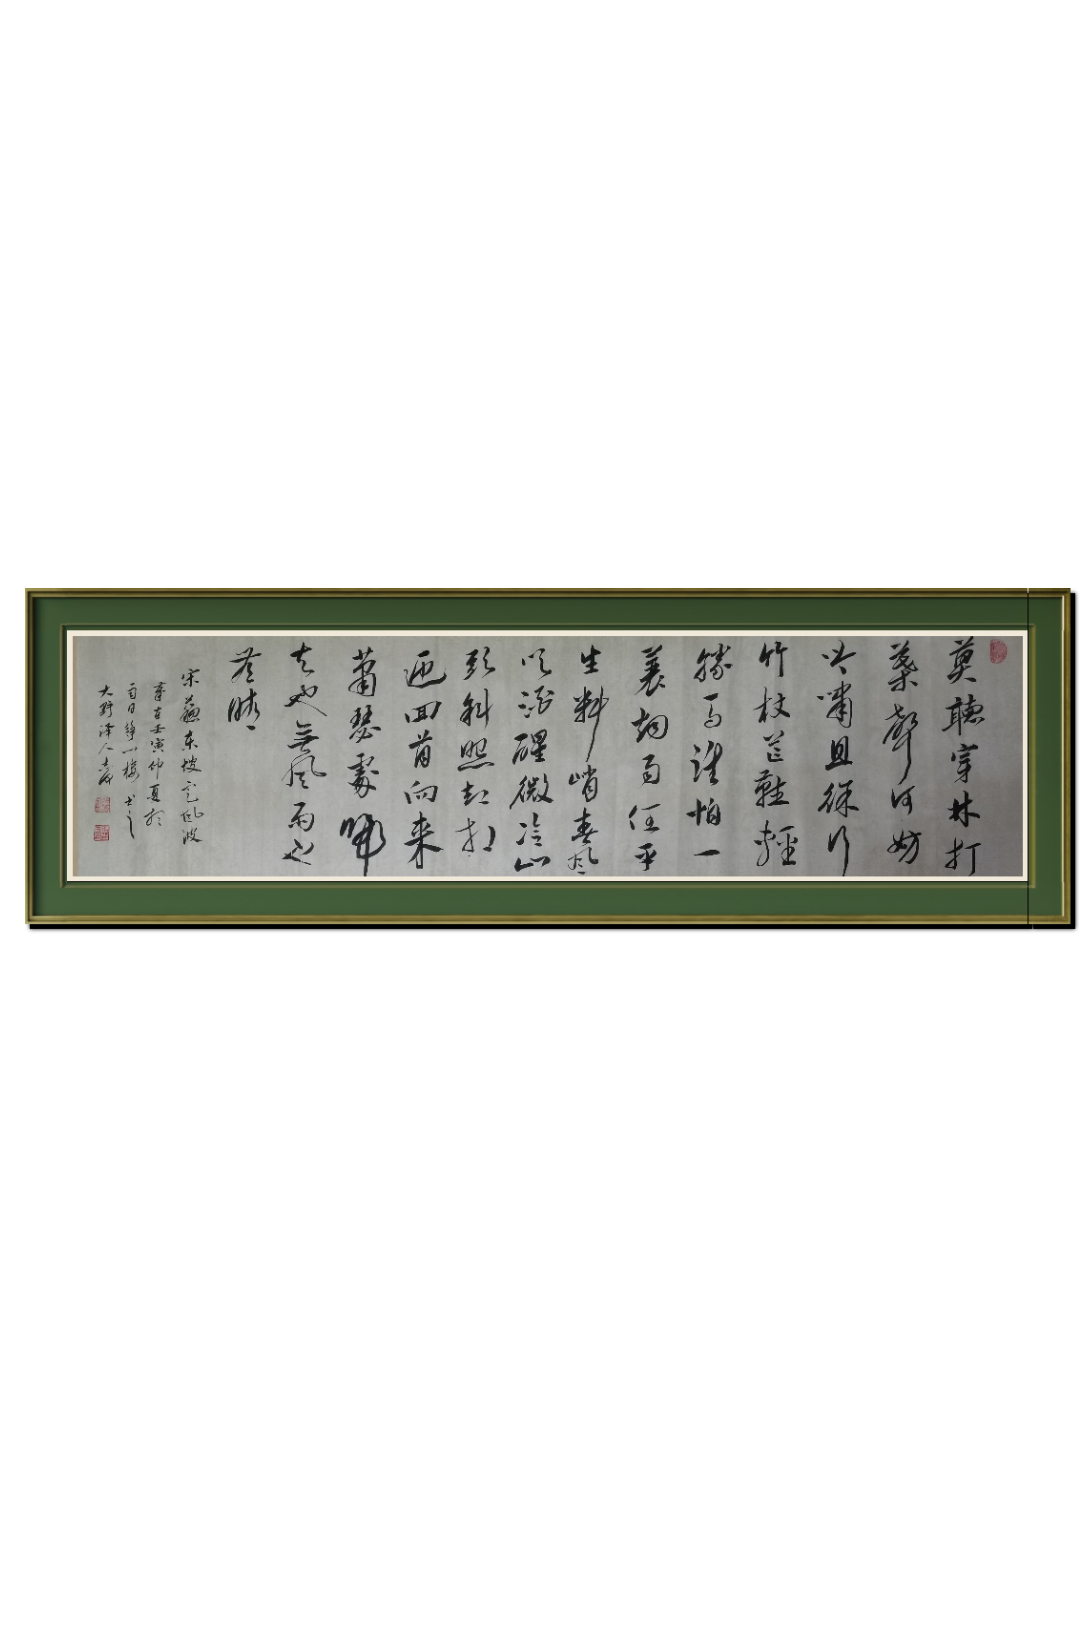 莫聽穿林打
葉聲何妨
吟嘯且徐行
竹杖芒鞋輕
勝馬誰怕一
蓑烟雨任平
生料峭春風
吹酒醒微冷山
頭斜照却相
迎回首向来
蕭瑟處歸
去也無風雨也
無晴
宋蘇東坡定风波
歲在壬寅仲夏於
小樓书之
大野澤人